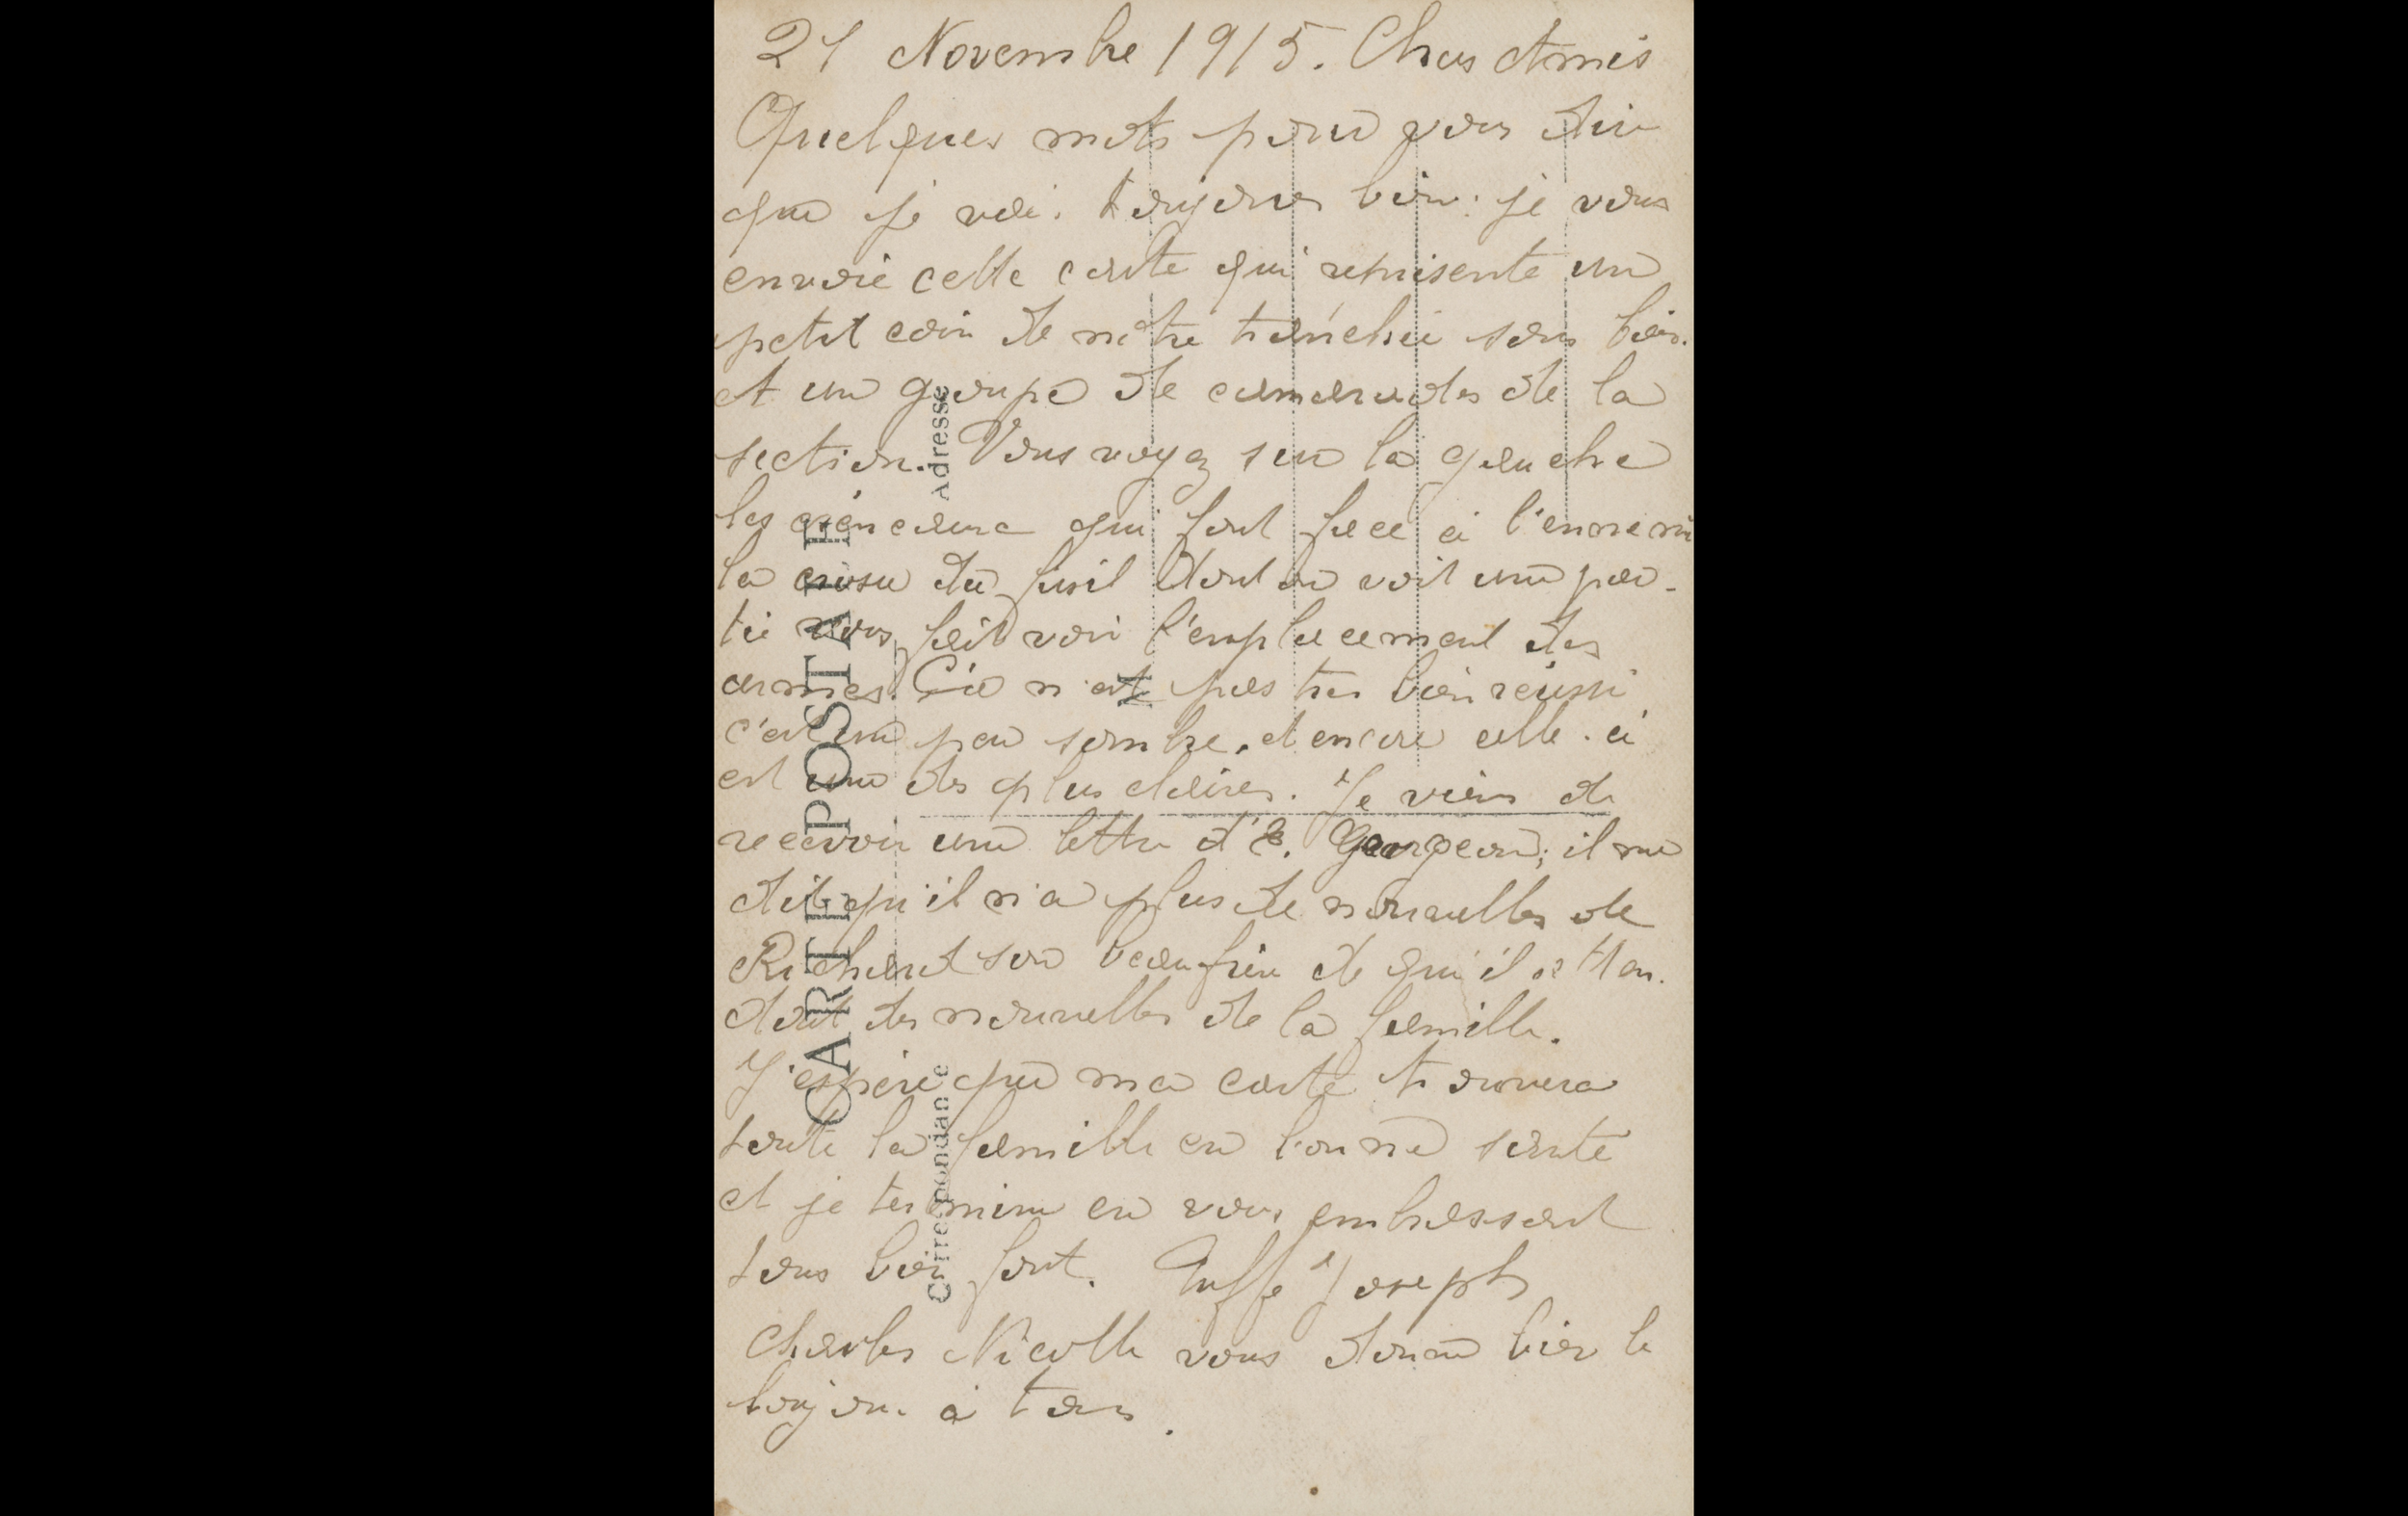 21 Novembre 1915. Chers Amis
Quelques mots pour vous dire
que je vai toujours bien: je vous
envoie cette carte qui represente un
petit coin de notre tranchée sous bois.
et un groupe de camarades de la
section. Vous voyez sur la gauche
les créneaux qui font face à l'ennemi
la crosse du fusil dont on voit une par-
tie vous fait voir l'emplacement des
armes. Ce n'est pas tres bien reussi
c'est un peu sombre, et encore celle-ci
est une des plus claires. Je viens de
recevoir une lettre d'E. Georgeon; il me
dit qu'il n'a plus de nouvelles de
Richard son beau frère de qui il atten-
dait des nouvelles de la famille.
J'espère que ma carte trouvera
toute la famille en bonne santé
et je termine en vous embrassant
tous bien fort. Joseph
Charles Nicolle vous donne bien le
bonjour à tous.
CARTE POSTALE
Correspondance
Adresse